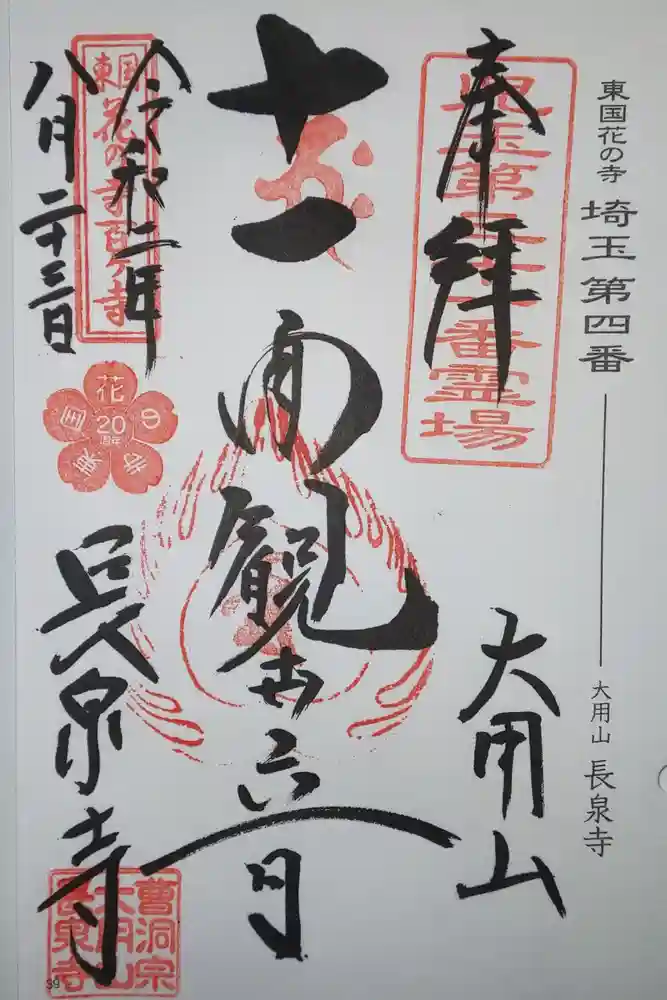 東国花の寺 埼玉第四番 大用山 長泉寺
奉拝
児玉第 番霊場
大用山
十一面観世音
令和二年
八月二十三日
東国花の寺百ヶ寺
東国花の寺
20
周年
長泉寺
曹洞宗
大用山
長泉寺
39